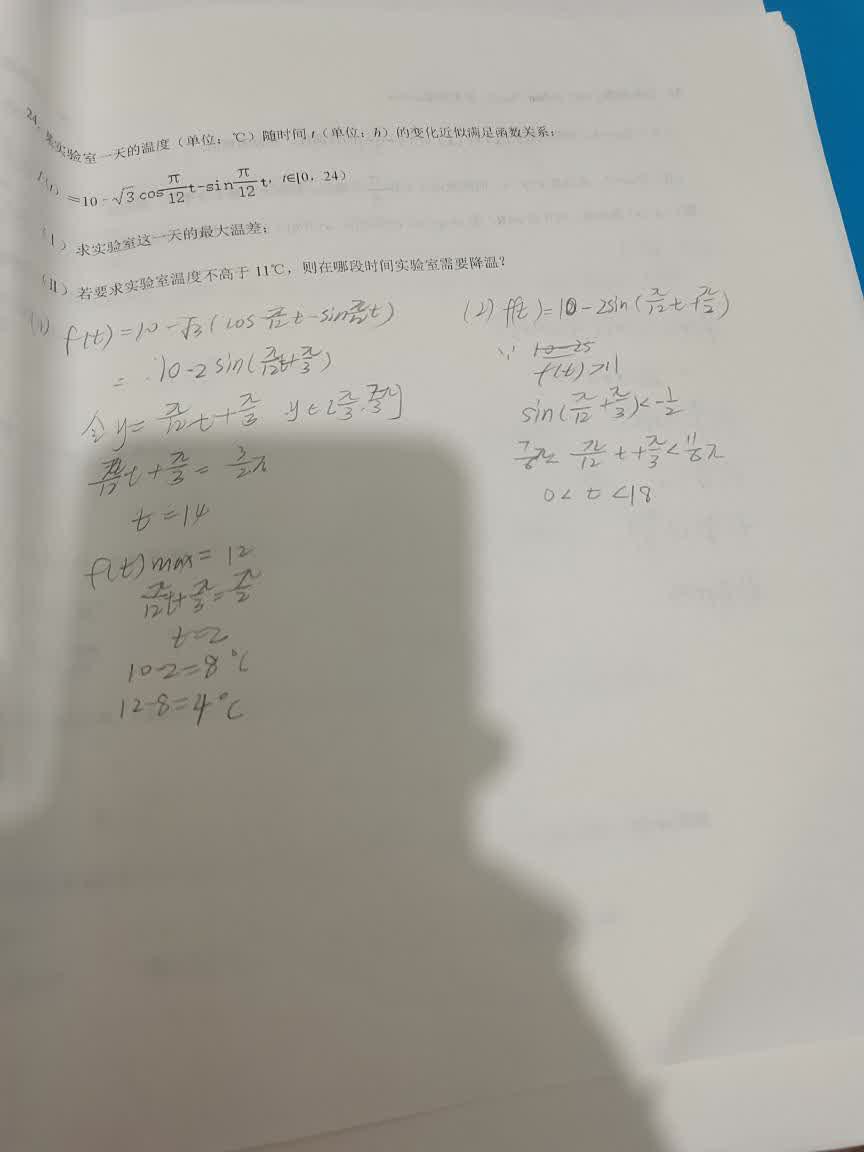 24. 某实验室一天的温度（单位：℃）随时间 t（单位：h）的变化近似满足函数关系：
f(t) =10-√3 cos π/12 t-sin π/12 t, t∈[0, 24)
(Ⅰ) 求实验室这一天的最大温差；
(Ⅱ) 若要求实验室温度不高于 11℃，则在哪段时间实验室需要降温？
(1) f(t)=10-√3(cos π/12 t-sin π/12 t)
= 10-2sin(π/12 t+π/3)
令 y= π/12 t+π/3 y∈[π/3, 7π/3]
π/12 t+π/3 = 3/2 π
t=14
f(t)max=12
π/12 t+π/3=π/2
t=2
10-2=8℃
12-8=4℃
(2) f(t)=10-2sin(π/12 t+π/2)
∵ 10-25
f(t)>11
sin(π/12+π/3)<-1/2
7/6π< π/12 t+π/3<11/6π
0<t<18